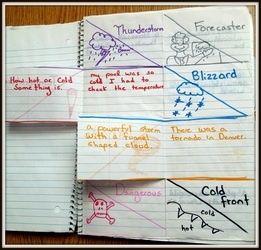 Thunderstorm
Forecaster
How hot or cold
Something is.
my pool was so
cold I had to
check the temperature
Blizzard
a powerful storm
with a funnel
shaped cloud.
There was a
tornado in Denver.
Dangerous
Cold
front
cold
hot